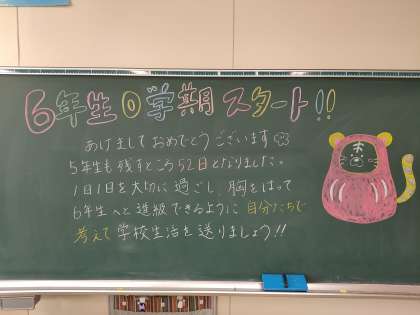 6年生0学期スタート!!
あけましておめでとうございます
5年生も残すところ52日となりました。
1日1日を大切に過ごし、胸をはって
6年生へと進級できるように自分たちで
考えて学校生活を送りましょう!!